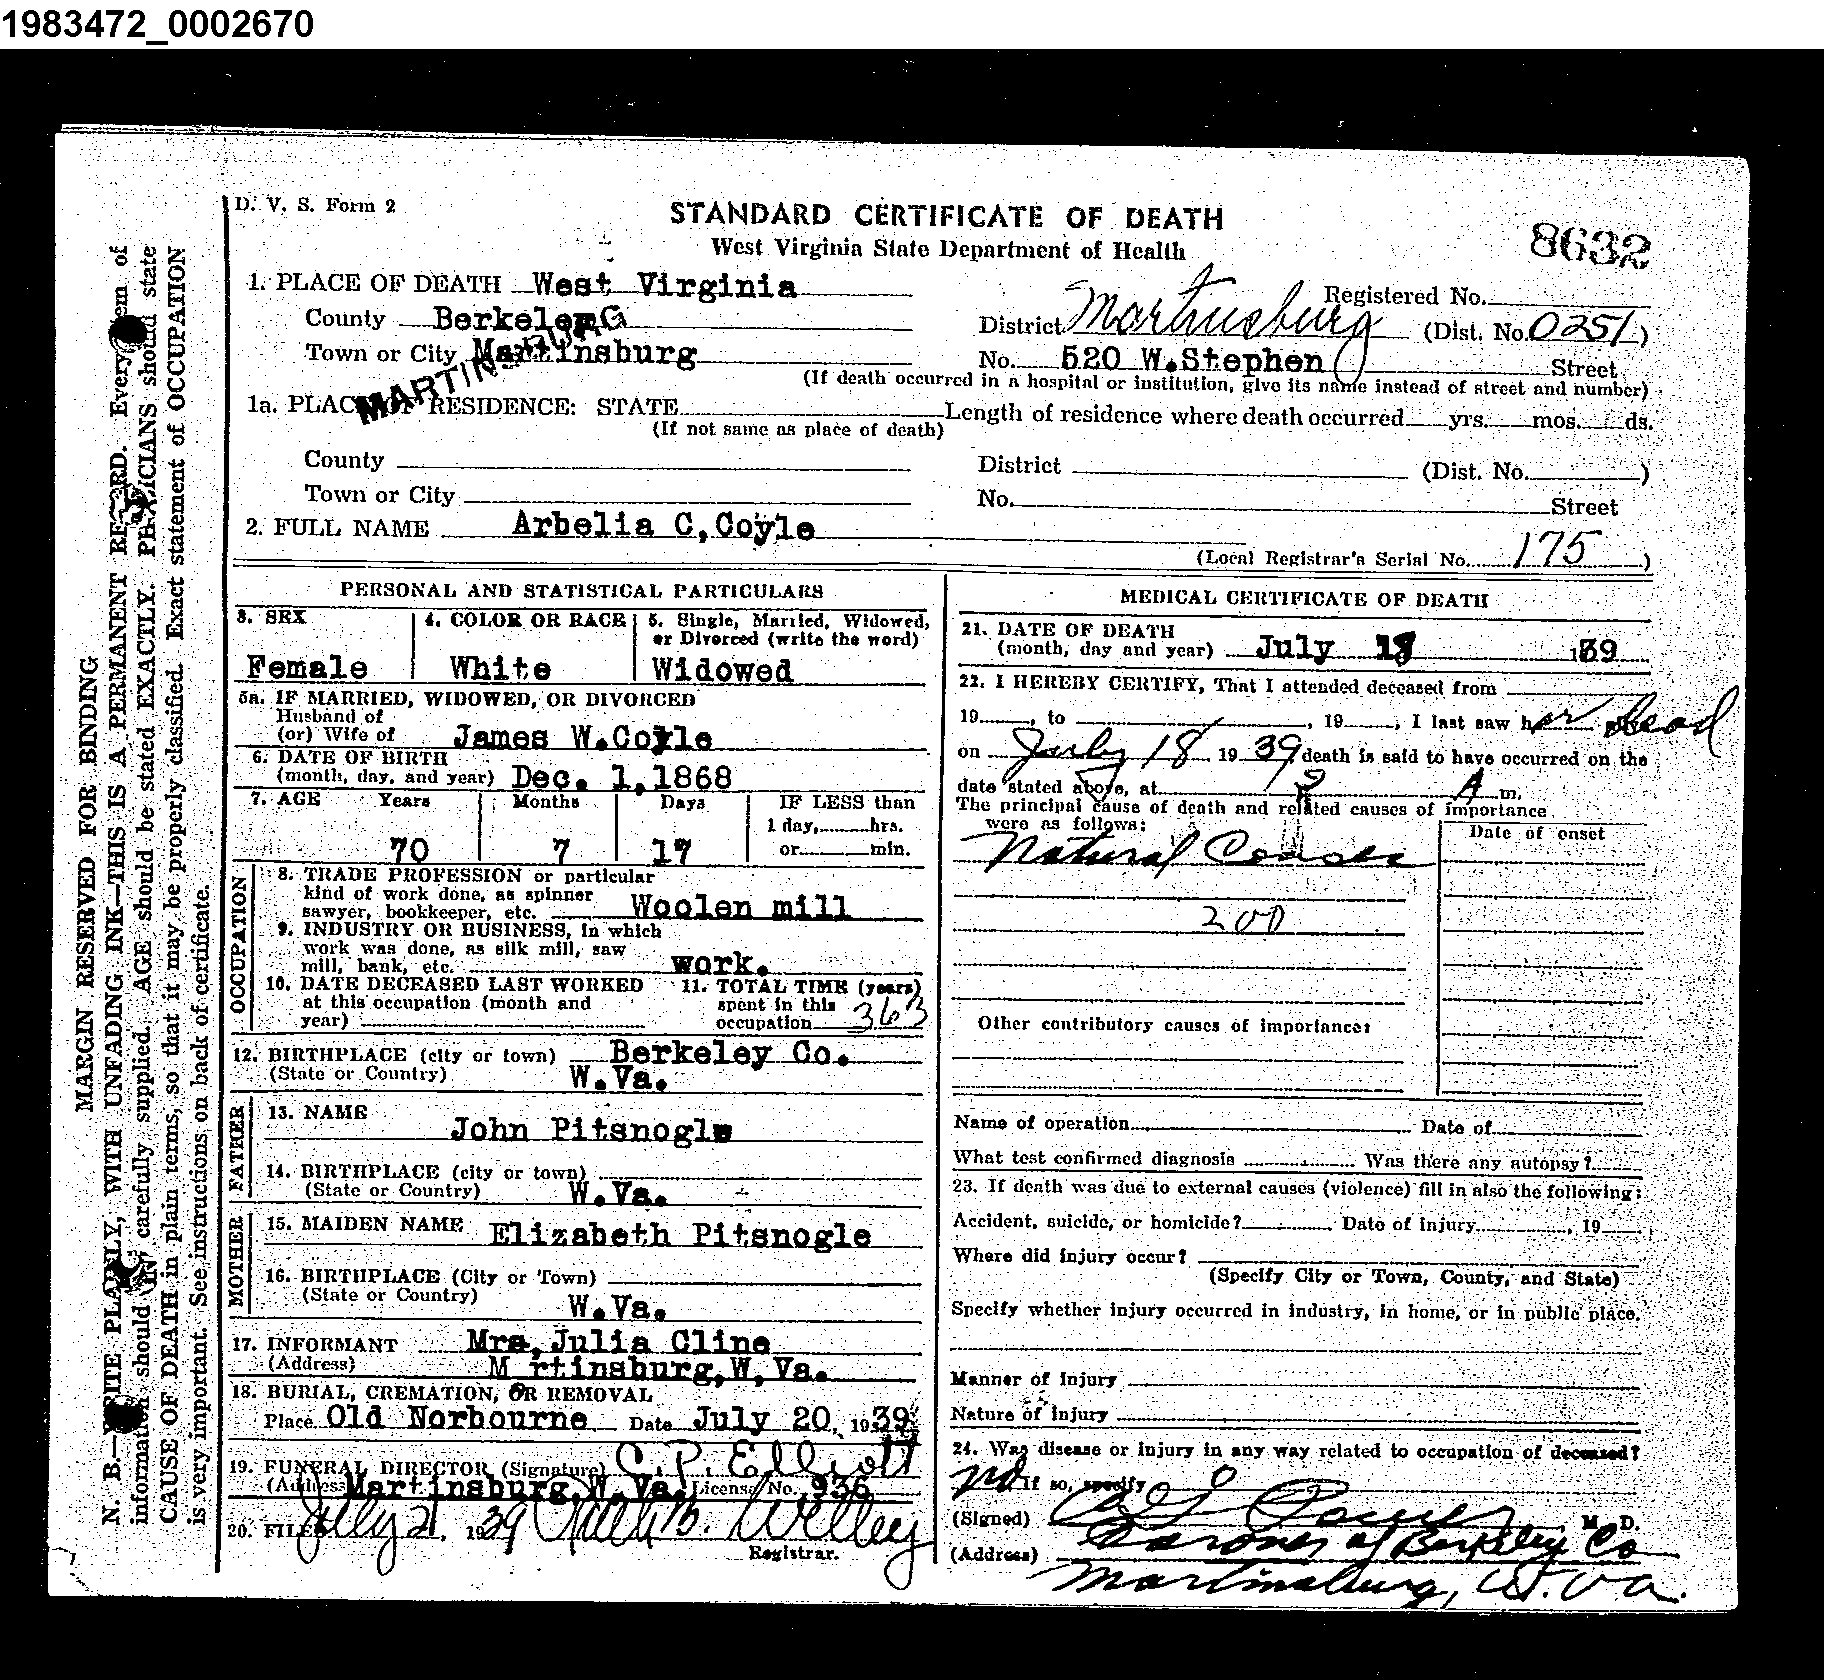 1983472_0002670
D. V. S. Form 2
STANDARD CERTIFICATE OF DEATH
West Virginia State Department of Health
8632
1. PLACE OF DEATH West Virginia
Registered No.
County Berkeley
District Martinsburg (Dist. No. 0251)
Town or City Martinsburg
No. 520 W.Stephen Street
(If death occurred in a hospital or institution, give its name instead of street and number)
MARTINSBURG
1a. PLACE OF RESIDENCE: STATE
Length of residence where death occurred yrs. mos. ds.
(If not same as place of death)
County
District (Dist. No. )
Town or City
No. Street
2. FULL NAME Arbelia C,Coyle
(Local Registrar's Serial No. 175 )
PERSONAL AND STATISTICAL PARTICULARS
3. SEX
Female
4. COLOR OR RACE
White
5. Single, Married, Widowed,
or Divorced (write the word)
Widowed
5a. IF MARRIED, WIDOWED, OR DIVORCED
Husband of
(or) Wife of James W.Coyle
6. DATE OF BIRTH
(month, day, and year) Dec. 1,1868
7. AGE Years Months Days
70 7 17
IF LESS than
1 day, hrs.
or min.
OCCUPATION
8. TRADE PROFESSION or particular
kind of work done, as spinner
sawyer, bookkeeper, etc. Woolen mill
9. INDUSTRY OR BUSINESS, in which
work was done, as silk mill, saw
mill, bank, etc. work.
10. DATE DECEASED LAST WORKED
at this occupation (month and
year)
11. TOTAL TIME (years)
spent in this
occupation 363
12. BIRTHPLACE (city or town) Berkeley Co.
(State or Country) W.Va.
FATHER
13. NAME
John Pitsnogle
14. BIRTHPLACE (city or town)
(State or Country) W.Va.
MOTHER
15. MAIDEN NAME Elizabeth Pitsnogle
16. BIRTHPLACE (City or Town)
(State or Country)
W.Va.
17. INFORMANT Mrs,Julia Cline
(Address) M rtinsburg,W,Va.
18. BURIAL, CREMATION, OR REMOVAL
Place Old Norbourne Date July 20, 1939
19. FUNERAL DIRECTOR (Signature) C. P. Elliott
(Address) Martinsburg W.Va. License No. 936
20. FILED July 21, 1939 Welley
Registrar.
MEDICAL CERTIFICATE OF DEATH
21. DATE OF DEATH
(month, day and year) July 18 1939
22. I HEREBY CERTIFY, That I attended deceased from
19 , to , 19 , I last saw her dead
on July 18 1939 death is said to have occurred on the
date stated above, at A m.
The principal cause of death and related causes of importance
were as follows:
Date of onset
Natural Causes
200
Other contributory causes of importance:
Name of operation Date of
What test confirmed diagnosis Was there any autopsy?
23. If death was due to external causes (violence) fill in also the following:
Accident, suicide, or homicide? Date of injury , 19
Where did injury occur?
(Specify City or Town, County, and State)
Specify whether injury occurred in industry, in home, or in public place.
Manner of Injury
Nature of injury
24. Was disease or injury in any way related to occupation of deceased?
no If so, specify
(Signed) M. D.
(Address) Coroner of Berkeley Co
Martinsburg, W. Va.
MARGIN RESERVED FOR BINDING
N. B.—WRITE PLAINLY, WITH UNFADING INK—THIS IS A PERMANENT RECORD. Every item of
information should be carefully supplied. AGE should be stated EXACTLY. PHYSICIANS should state
CAUSE OF DEATH in plain terms, so that it may be properly classified. Exact statement of OCCUPATION
is very important. See instructions on back of certificate.